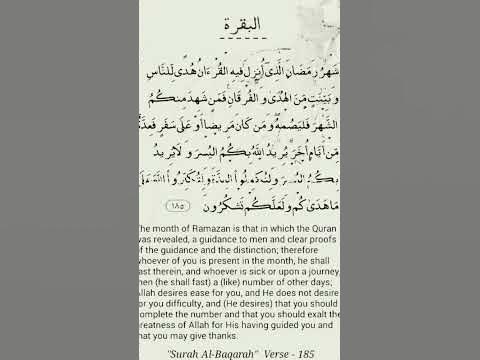 البقرة
شَهْرُ رَمَضَانَ الَّذِي أُنزِلَ فِيهِ الْقُرْءَانُ هُدًى لِّلنَّاسِ
وَبَيِّنَٰتٍ مِّنَ الْهُدَىٰ وَالْفُرْقَانِ فَمَن شَهِدَ مِنكُمُ
الشَّهْرَ فَلْيَصُمْهُ وَمَن كَانَ مَرِيضًا أَوْ عَلَىٰ سَفَرٍ فَعِدَّةٌ
مِّنْ أَيَّامٍ أُخَرَ يُرِيدُ اللَّهُ بِكُمُ الْيُسْرَ وَلَا يُرِيدُ
بِكُمُ الْعُسْرَ وَلِتُكْمِلُوا الْعِدَّةَ وَلِتُكَبِّرُوا اللَّهَ عَلَىٰ
مَا هَدَىٰكُمْ وَلَعَلَّكُمْ تَشْكُرُونَ ١٨٥
he month of Ramazan is that in which the Quran
was revealed, a guidance to men and clear proofs
of the guidance and the distinction; therefore
whoever of you is present in the month, he shall
ast therein, and whoever is sick or upon a journey,
hen (he shall fast) a (like) number of other days;
Allah desires ease for you, and He does not desire
or you difficulty, and (He desires) that you should
omplete the number and that you should exalt the
reatness of Allah for His having guided you and
hat you may give thanks.
"Surah Al-Baqarah" Verse - 185